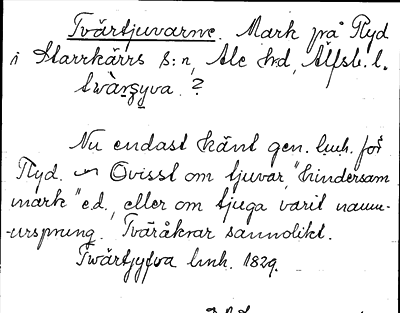 Tvärtjuvarne. Mark på Ryd
i Starrkärrs s:n, Ale hrd, Älfsb. l.
?
Nu endast känt gen. lmh. för
Ryd. Ovisst om tjuvar, "hindersam
mark" ed., eller om tjuga varit namn-
-ursprung. Tväråkrar sannolikt.
Twärtjyfwa lmh. 1829.